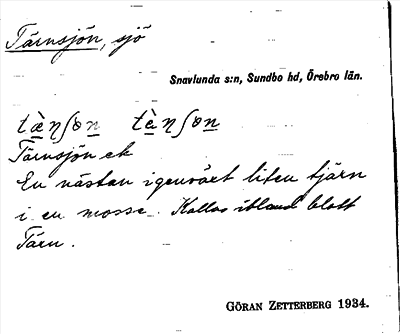 Tärnsjön, sjö
Snavlunda s:n, Sundbo hd, Örebro län.
tæ̀ŋʃɵn tèŋʃɵn
Tärnsjön ek
En nästan igenväxt liten tjärn
i en mosse. Kallas ibland blott
Tärn.
GÖRAN ZETTERBERG 1934.